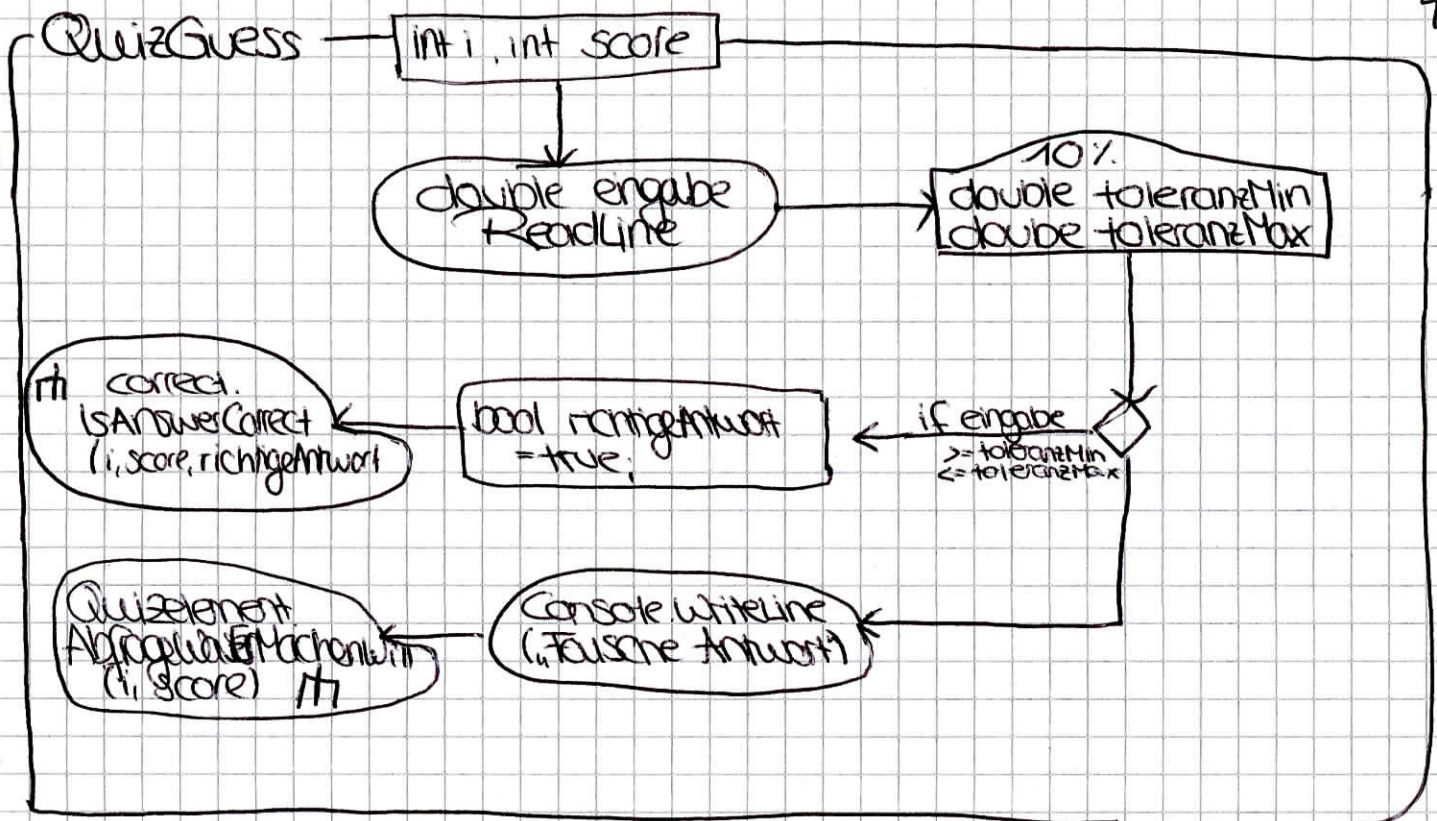 QuizGuess
int i, int score
double eingabe
ReadLine
10%
double toleranzMin
double toleranzMax
if eingabe
>= toleranzMin
<= toleranzMax
bool richtigeAntwort
= true;
correct.
isAnswerCorrect
(i, score, richtigeAntwort
Console.WriteLine
(„Falsche Antwort")
Quizelement.
(i, score)